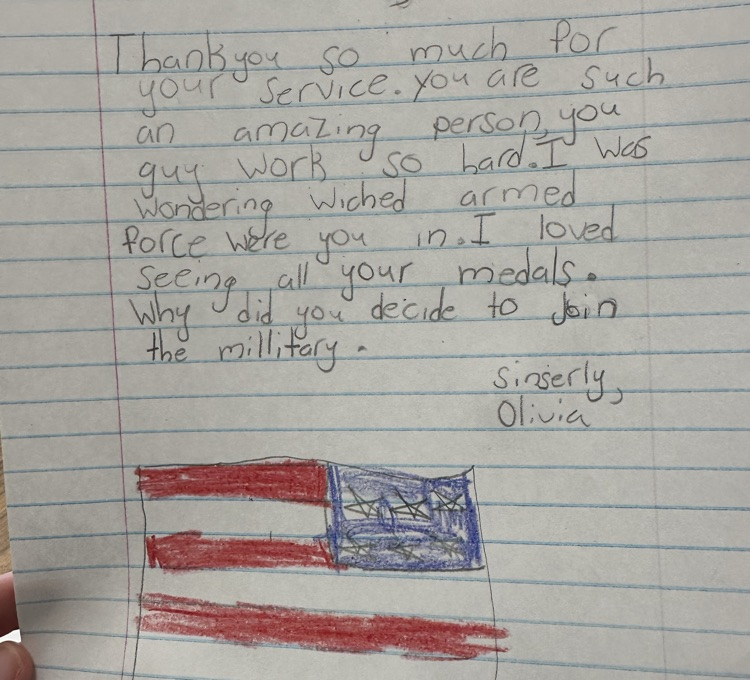 Thank you so much for
your service. you are such
an amazing person, you
guy work so hard. I was
wondering wiched armed
force were you in. I loved
seeing all your medals.
Why did you decide to join
the millitary.
Sinserly,
Olivia